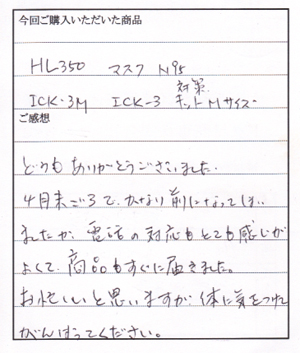 今回ご購入いただいた商品
HL350 マスク N95
対策
ICK-3M ICK-3 キット Mサイズ
ご感想
どうもありがとうございました。
4月末ごろで、かなり前になってしまい
ましたが、電話の対応もとても感じが
よくて、商品もすぐに届きました。
お忙しいと思いますが、体に気をつけて
がんばってください。